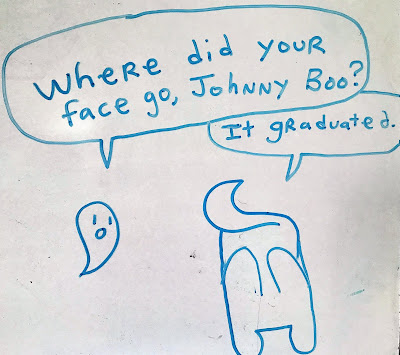 Where did your
face go, Johnny Boo?
It graduated.